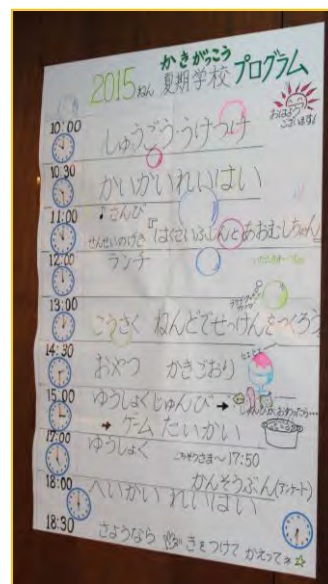 かきがっこう
2015ねん 夏期学校 プログラム
おはよう
ございます!
10:00
しゅうごう・うけつけ
10:30
かいかいれいはい
11:00
さんび
せんせいのげき『はくさいふじんとあおむしちゃん』
12:00
ランチ
13:00
こうさく ねんどでせっけんをつくろう
14:30
おやつ かきごおり
15:00
ゆうしょくじゅんび→
じゅんびがおわったら…
→ゲームたいかい
17:00
ゆうしょく
ごちそうさま〜17:50
18:00
へいかいれいはい
かんそうぶん(アンケート)
18:30
さようなら きをつけてかえってネ☆